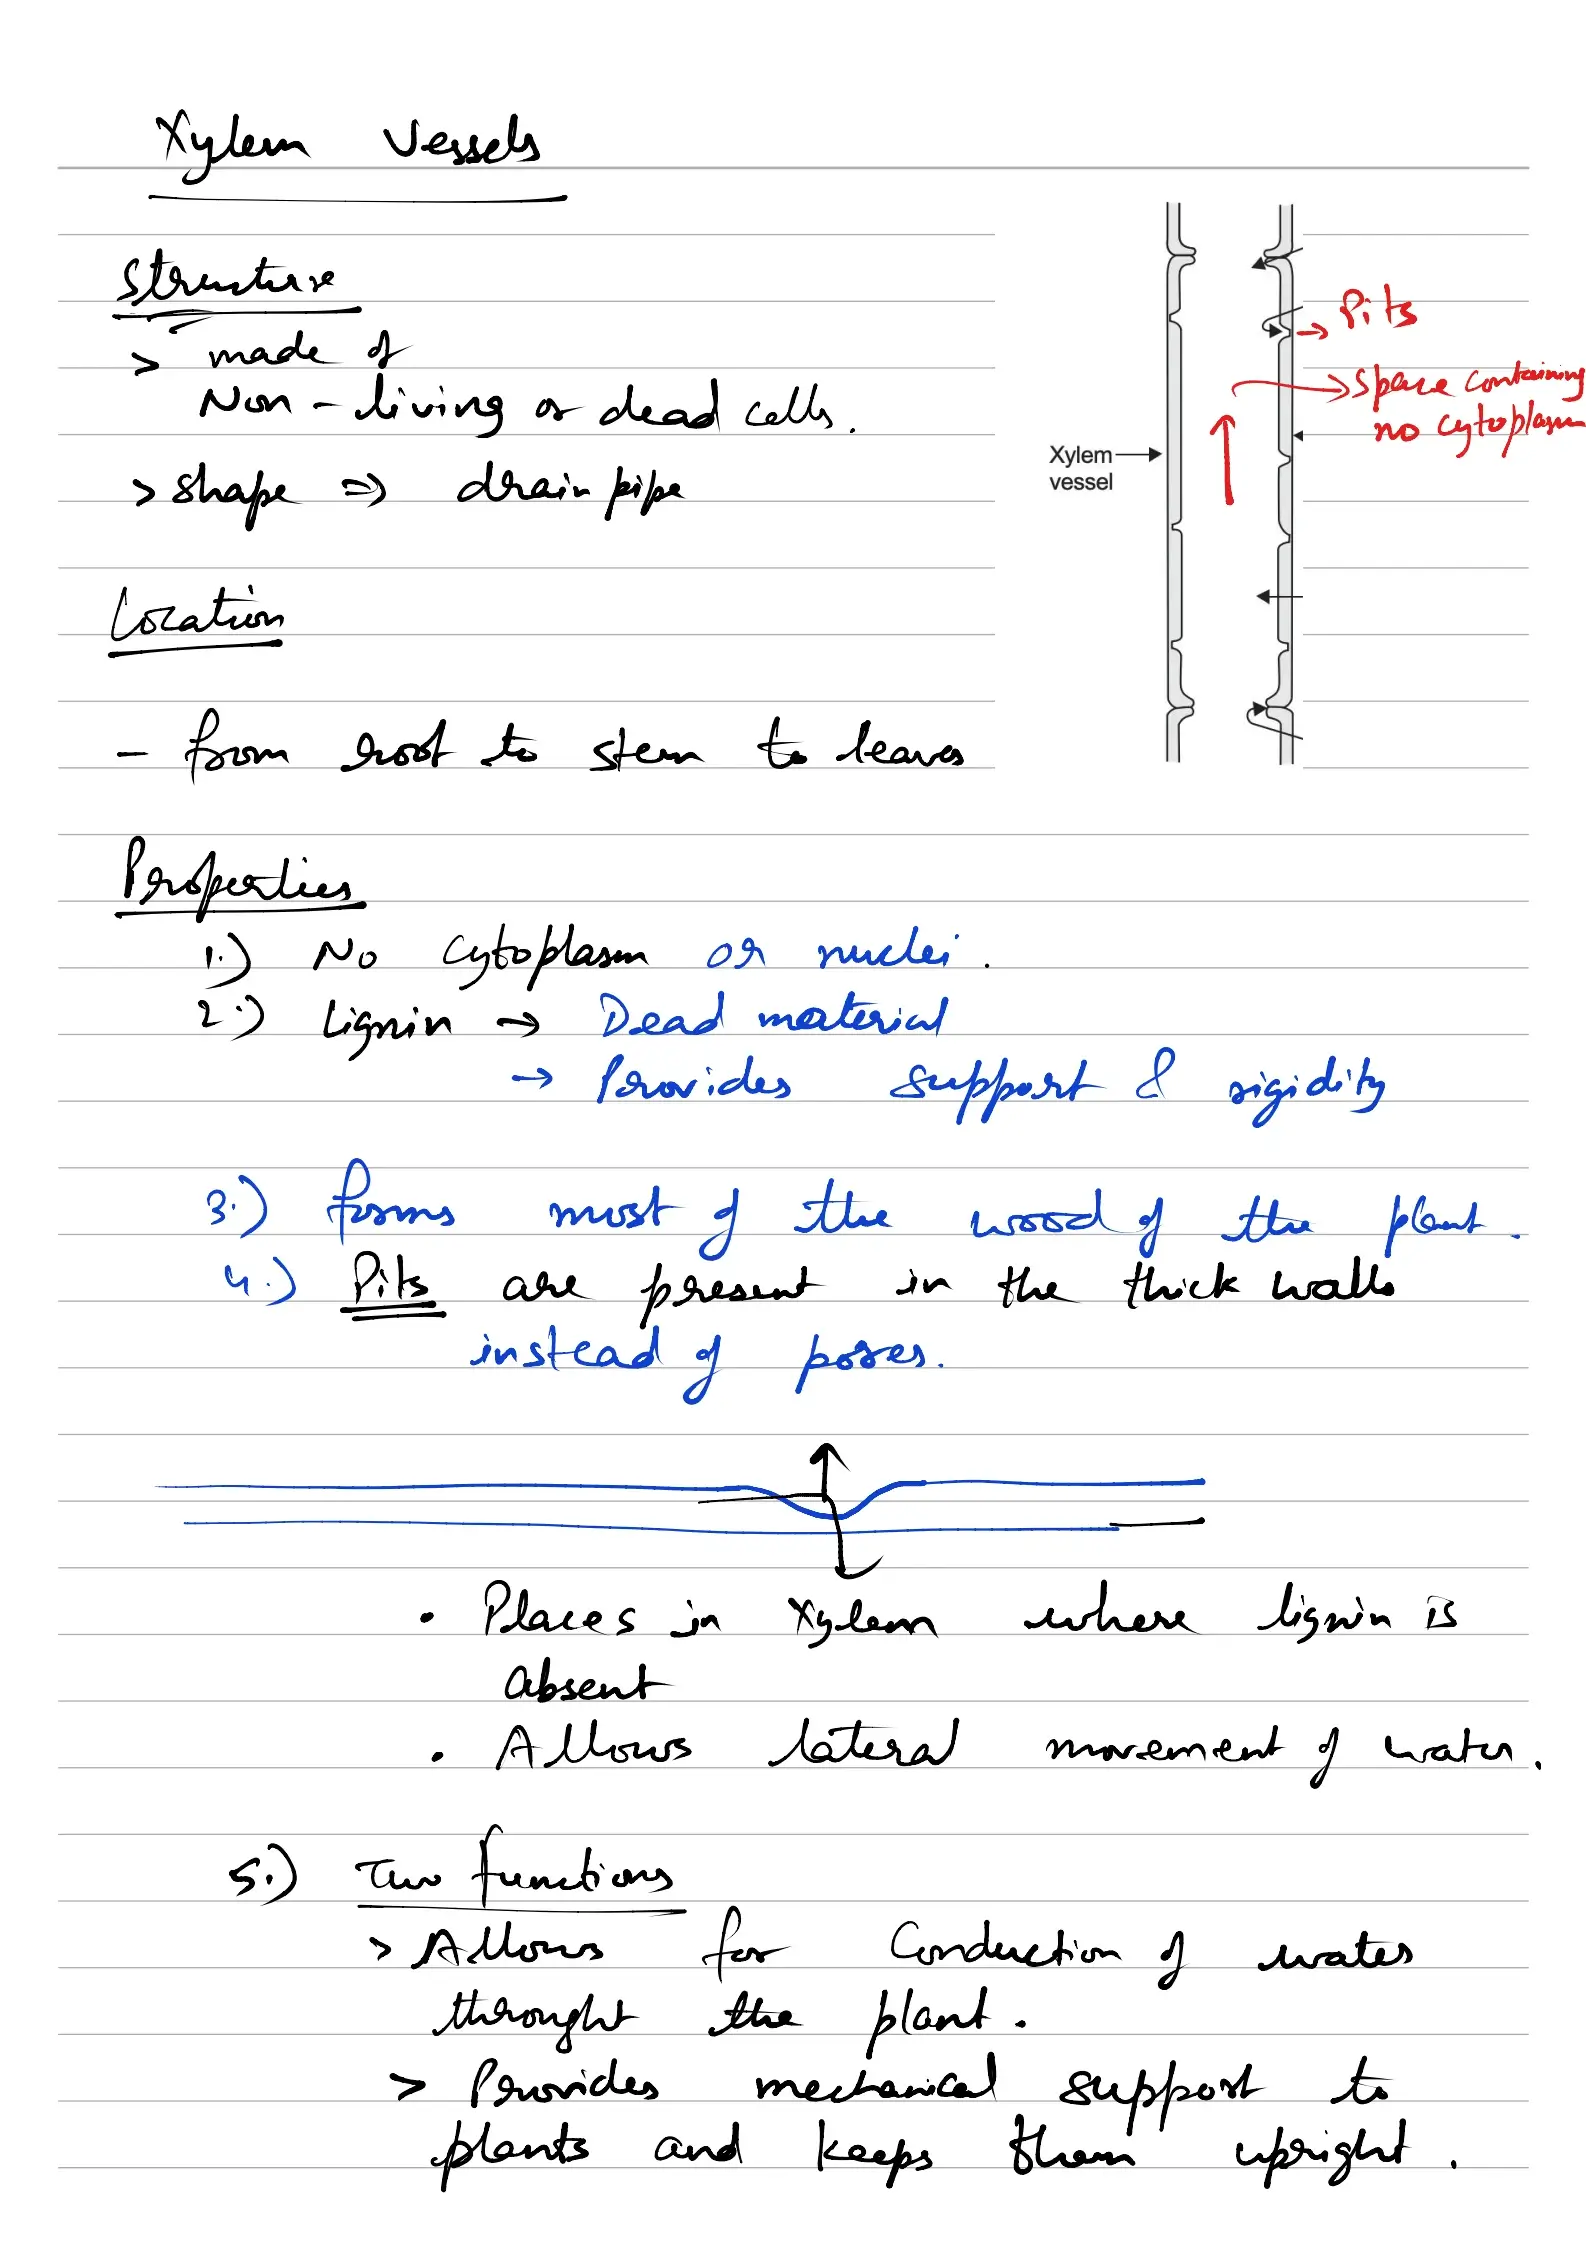 Xylem Vessels
Structure
> made of
Non-living or dead cells.
> shape ⇒ drain pipe
→ Pits
→ Space containing
no cytoplasm
Xylem
vessel
Location
- from root to stem to leaves
Properties
1.) No cytoplasm or nuclei.
2.) Lignin → Dead material
→ Provides support & rigidity
3.) forms most of the wood of the plant.
4.) Pits are present in the thick walls
instead of pores.
• Places in xylem where lignin is
absent
• Allows lateral movement of water.
5.) Two functions
> Allows for Conduction of water
throught the plant.
> Provides mechanical support to
plants and keeps them upright.